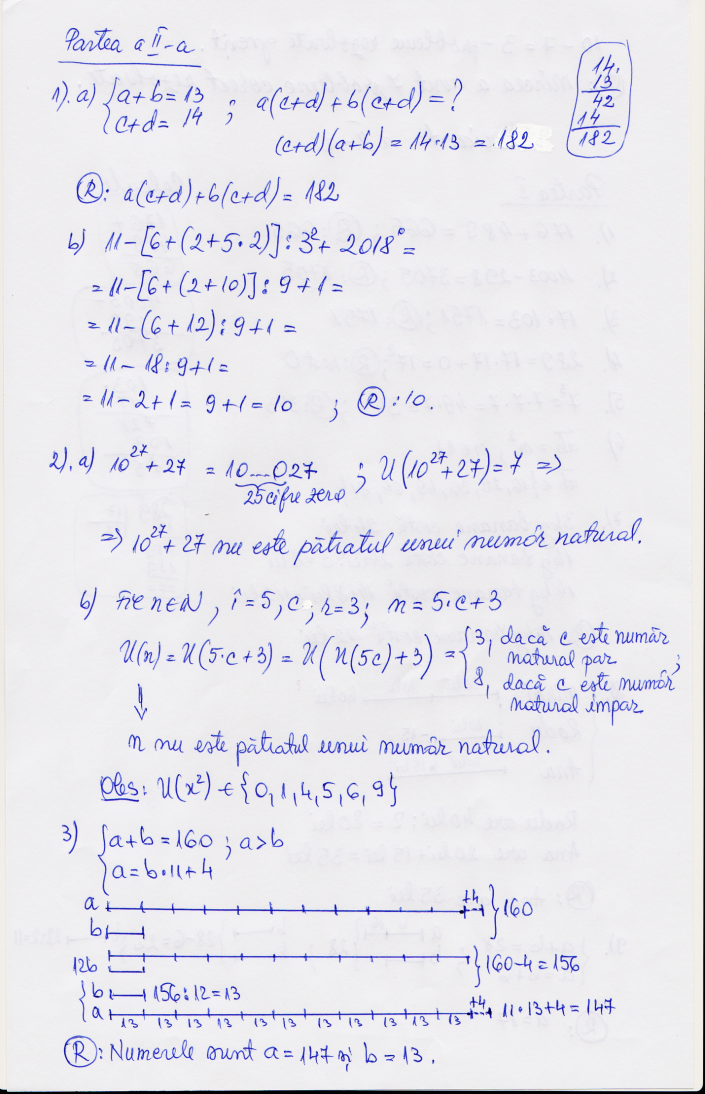 Partea a II-a
1). a) { a+b = 13
c+d = 14 ; a(c+d)+b(c+d) = ?
(c+d)(a+b) = 14·13 = 182
14.
13
42
14
182
Ⓡ: a(c+d)+b(c+d) = 182
b) 11-[6+(2+5·2)]:3²+2018⁰ =
= 11-[6+(2+10)]:9+1 =
= 11-(6+12):9+1 =
= 11-18:9+1 =
= 11-2+1 = 9+1 = 10 ; Ⓡ: 10.
2). a) 10²⁷+27 = 10...027 ; U(10²⁷+27) = 7 ⇒
25 cifre zero
⇒ 10²⁷+27 nu este pătratul unui număr natural.
b) Fie n∈N, î=5, c, r=3; n = 5·c+3
U(n) = U(5·c+3) = U(U(5c)+3) = { 3, dacă c este număr
natural par ;
8, dacă c este număr
natural impar
⇓
n nu este pătratul unui număr natural.
Obs: U(x²) ∈ {0,1,4,5,6,9}
3) { a+b = 160 ; a>b
a = b·11+4
a +4 } 160
b
12b } 160-4 = 156
{ b 156:12 = 13
a 13 13 13 13 13 13 13 13 13 13 13 +4 11·13+4 = 147
Ⓡ: Numerele sunt a = 147 și b = 13.